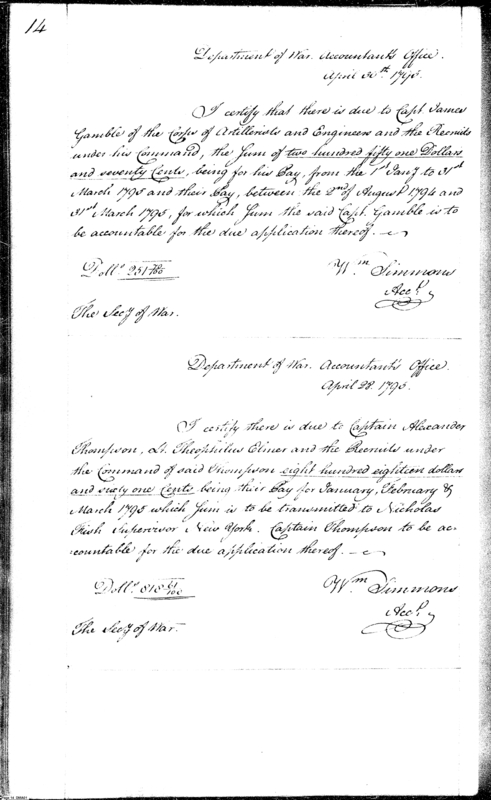 14
Department of War. Accountant's Office.
April 30th 1795.
I certify that there is due to Capt. James
Gamble of the Corps of Artillerists and Engineers and the Recruits
under his Command, the Sum of two hundred fifty one Dollars
and seventy Cents, being for his Pay, from the 1st Jany to 31st
March 1795 and their Pay, between the 2nd of August 1794 and
31st March 1795, for which Sum the said Capt. Gamble is to
be accountable for the due application thereof.
Dolls. 251 70/100
Wm Simmons
Acct.
The Secy of War.
Department of War. Accountant's Office.
April 28. 1795.
I certify there is due to Captain Alexander
Thompson, Lt. Theophilus Elmer and the Recruits under
the Command of said Thompson eight hundred eighteen dollars
and sixty one Cents being their Pay for January, February &
March 1795 which Sum is to be transmitted to Nicholas
Fish Supervisor New York. Captain Thompson to be ac-
countable for the due application thereof.
Dolls. 818 61/100
Wm Simmons
Acct.
The Secy of War.